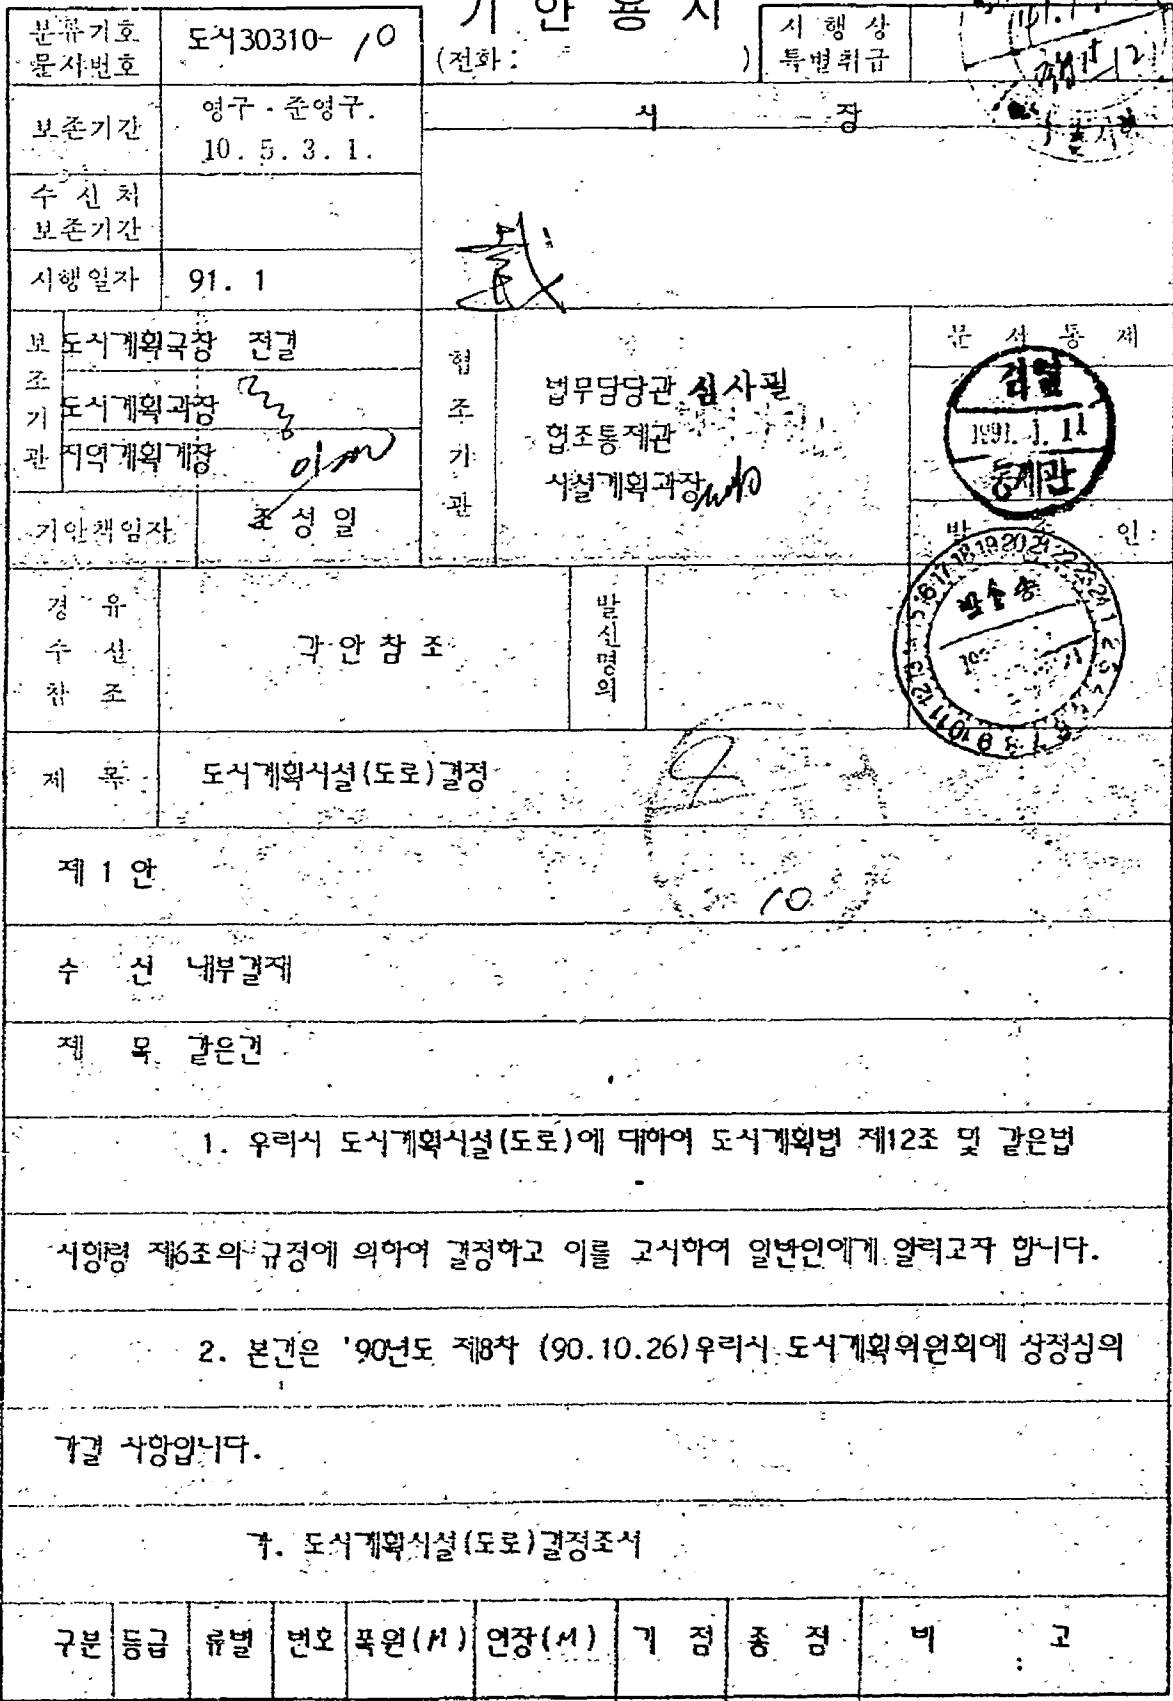 기 안 용 지
분류기호
문서번호
도시30310- 10
(전화 : )
시 행 상
특별취급
보존기간
영구 · 준영구.
10. 5. 3. 1.
시 장
수 신 처
보존기간
시행일자
91. 1
보조기관
도시계획국장 전결
도시계획과장
지역계획계장
기안책임자
조 성 일
협조기관
법무담당관 심사필
협조통제관
시설계획과장
문 서 통 제
검열
1991. 1. 11
통제관
발 송 인
경 유
수 신
참 조
각 안 참 조
발신명의
발송
제 목
도시계획시설(도로)결정
10
제 1 안
수 신 내부결재
제 목 같은건
1. 우리시 도시계획시설(도로)에 대하여 도시계획법 제12조 및 같은법
시행령 제6조의 규정에 의하여 결정하고 이를 고시하여 일반인에게 알리고자 합니다.
2. 본건은 '90년도 제8차 (90.10.26)우리시 도시계획위원회에 상정심의
가결 사항입니다.
가. 도시계획시설(도로)결정조서
구분 등급 류별 번호 폭원(M) 연장(M) 기 점 종 점 비 고